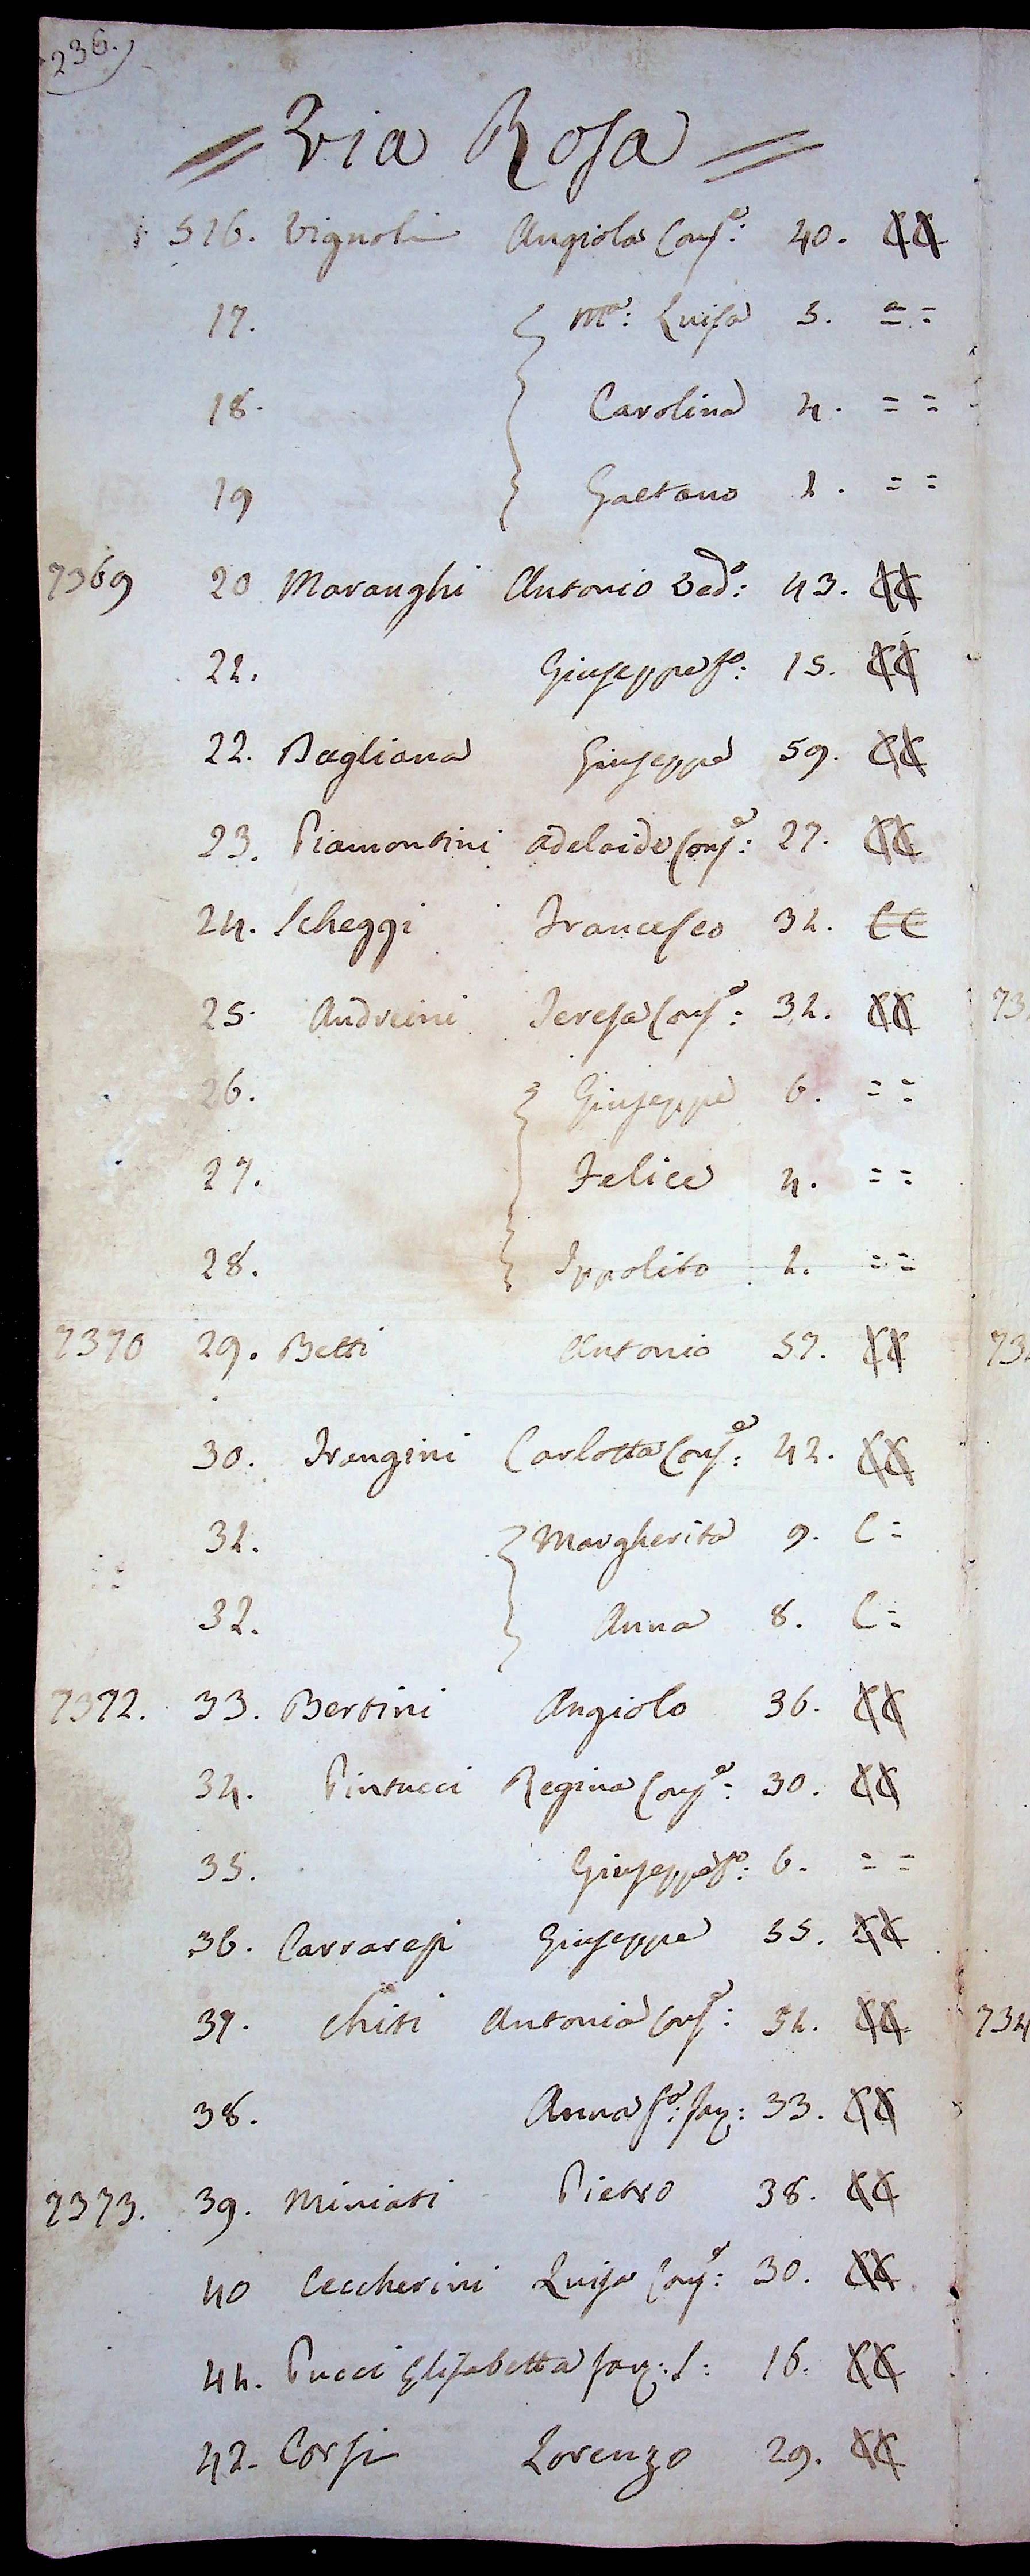 236.
= Via Rosa =
516. Vignoli Angiola Conj.ᵉ: 40. CC
17. Mᵃ: Luisa 5. = =
18. Carolina 4. = =
19 Gaetano 1. = =
7369 20 Maranghi Antonio Vedᵒ: 43. CC
21. Giuseppe fᵒ: 15. CC
22. Bagliana Giuseppe 59. CC
23. Piamontini Adelaide Conjᵉ: 27. CC
24. Scheggi Francesco 31. CC
25. Andreini Teresa Conjᵉ: 31. CC
26. Giuseppe 6. = =
27. Felice 4. = =
28. Ippolito 1. = =
7370 29. Betti Antonio 57. CC
30. Frangini Carlotta Conjᵉ: 42. CC
31. Margherita 9. C =
32. Anna 8. C =
7372. 33. Bertini Angiolo 36. CC
34. Pintucci Regina Conjᵉ: 30. CC
35. Giuseppe fᵒ: 6. = =
36. Carraresi Giuseppe 55. CC
37. Chiti Antonia Conjᵉ: 51. CC
38. Anna fᵃ: 33. CC
7373. 39. Miniati Pietro 38. CC
40 Ceccherini Luisa Conjᵉ: 30. CC
41. Pucci Elisabetta 16. CC
42. Corsi Lorenzo 29. CC